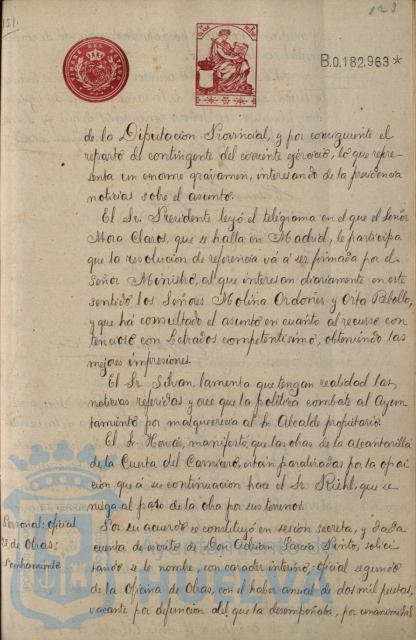 151.
B.0.182,963*
de la Diputación Provincial, y por consiguiente el
reparto del contingente del corriente ejercicio, lo que repre-
senta un enorme gravamen, interesando de la presidencia
noticias sobre el asunto.
El Sr. Presidente leyó el telegrama en el que el Señor
Mora Claros, que se halla en Madrid, le participa
que la resolución de referencia vá á ser firmada por el
Señor Ministro, al que interesan diariamente en este
sentido los Señores Molina Ordoñez y Orta Rebollo,
y que há consultado el asunto en cuanto al recurso con
tencioso con Letrados competentísimo, obteniendo las
mejores impresiones.
El Sr. Silvan, lamenta que tengan realidad las
noticias referidas y cree que la política combate al Ayun
tamiento por malquerencia al Sr. Alcalde propietario.
El Sr. manifestó que las obras de la alcantarilla
de la Cuesta del Carnicero, están paralizadas por la oposi
ción que á su continuación hace el Sr. que se
niega al paso de la obra por sus terrenos.
Personal: Oficial
2º de Obras:
Nombramiento
Por su acuerdo se constituyó en sesión secreta, y dada
cuenta de escrito de Don Adrian Pinto, solici
tando se le nombre, con caracter interino, Oficial segundo
de la Oficina de Obras, con el haber anual de dos mil pesetas,
vacante por defunción del que la desempeñaba, por unanimidad
Ayuntamiento de
HUELVA